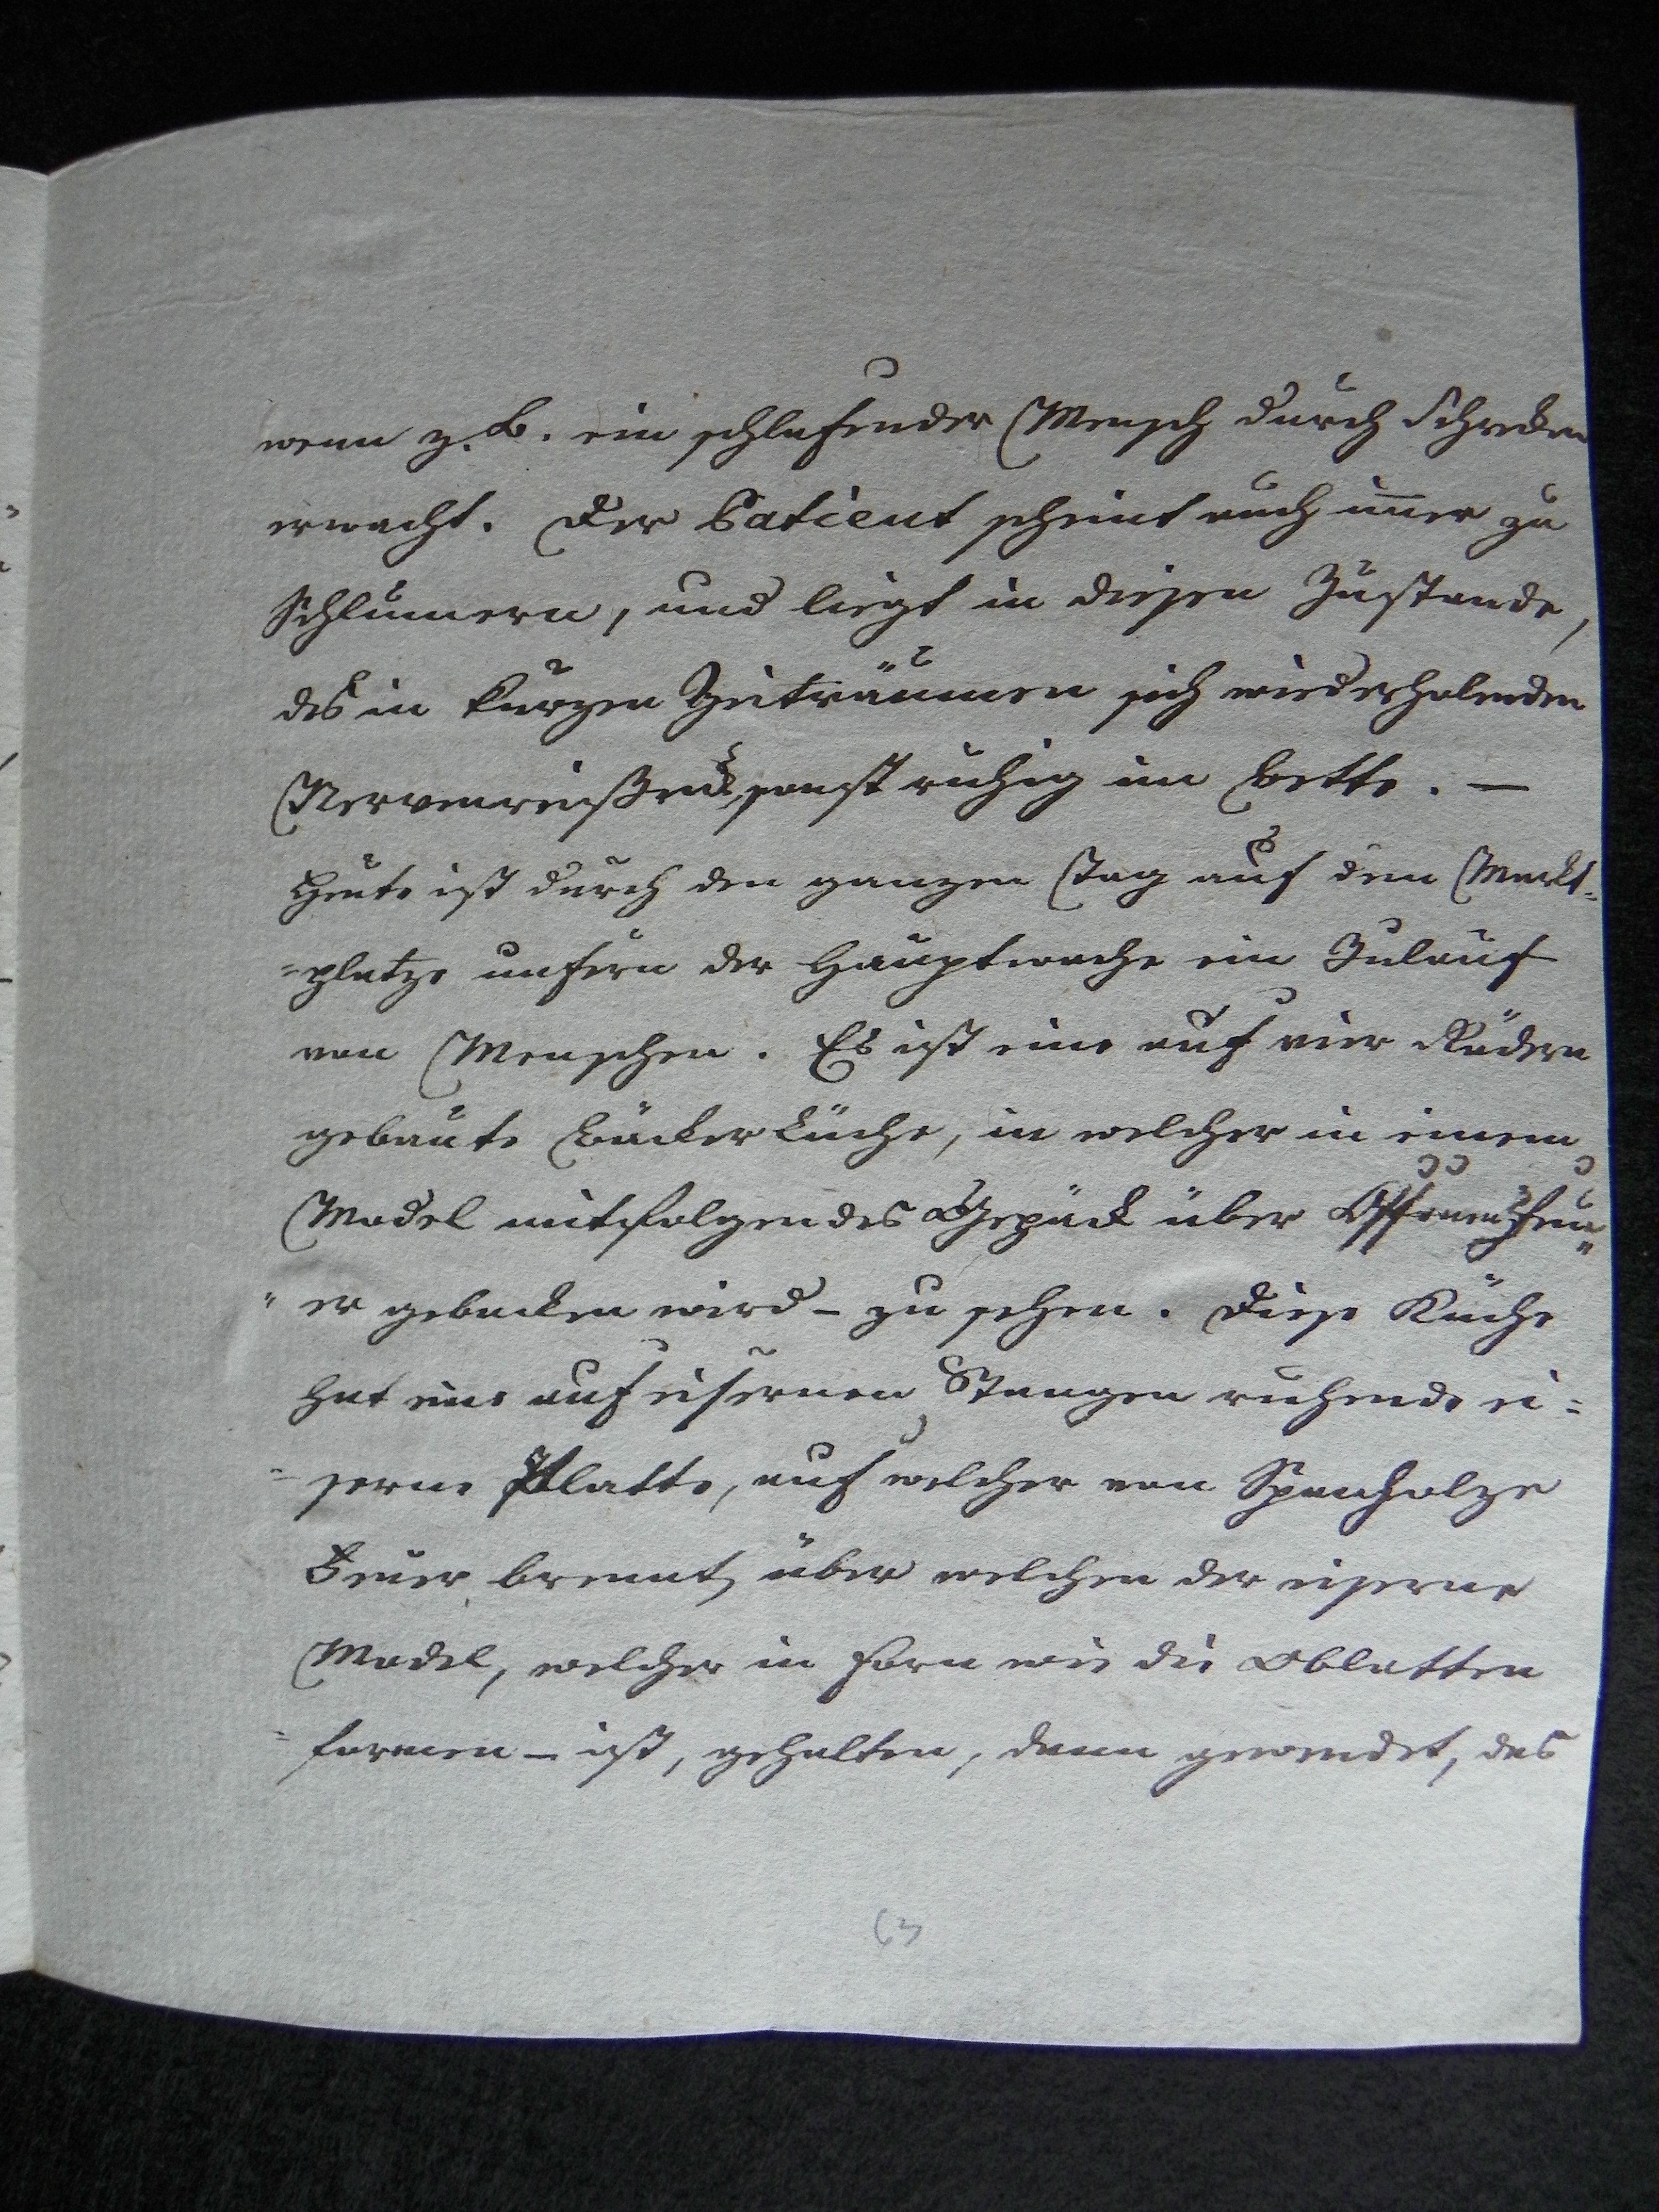 wenn z. B. ein schlafender Mensch durch Schrecken
erwacht. Der Patient scheint auch im̄er zu
Schlum̄ern, und liegt in diesen Zustande,
des in kurzen Zeiträumen sich wiederholenden
Nervenreißens, sonst ruhig im Bette. —
Heute ist durch den ganzen Tag auf dem Markt=
=platze unfern der Hauptwache ein Zulauf
von Menschen. Es ist eine auf vier Rädern
gebaute Bäckerküche, in welcher in einem
Model mitfolgendes Gepäck über Offenen Feu„
„er gebacken wird – zu sehen. Diese Küche
hat eine auf eisernen Stangen ruhende ei=
=serne Platte, auf welcher von Spanholze
Feuer brennt, über welchen der eiserne
Model, welcher in Form wie die Oblatten
=formen – ist, gehalten, dann gewendet, das
63